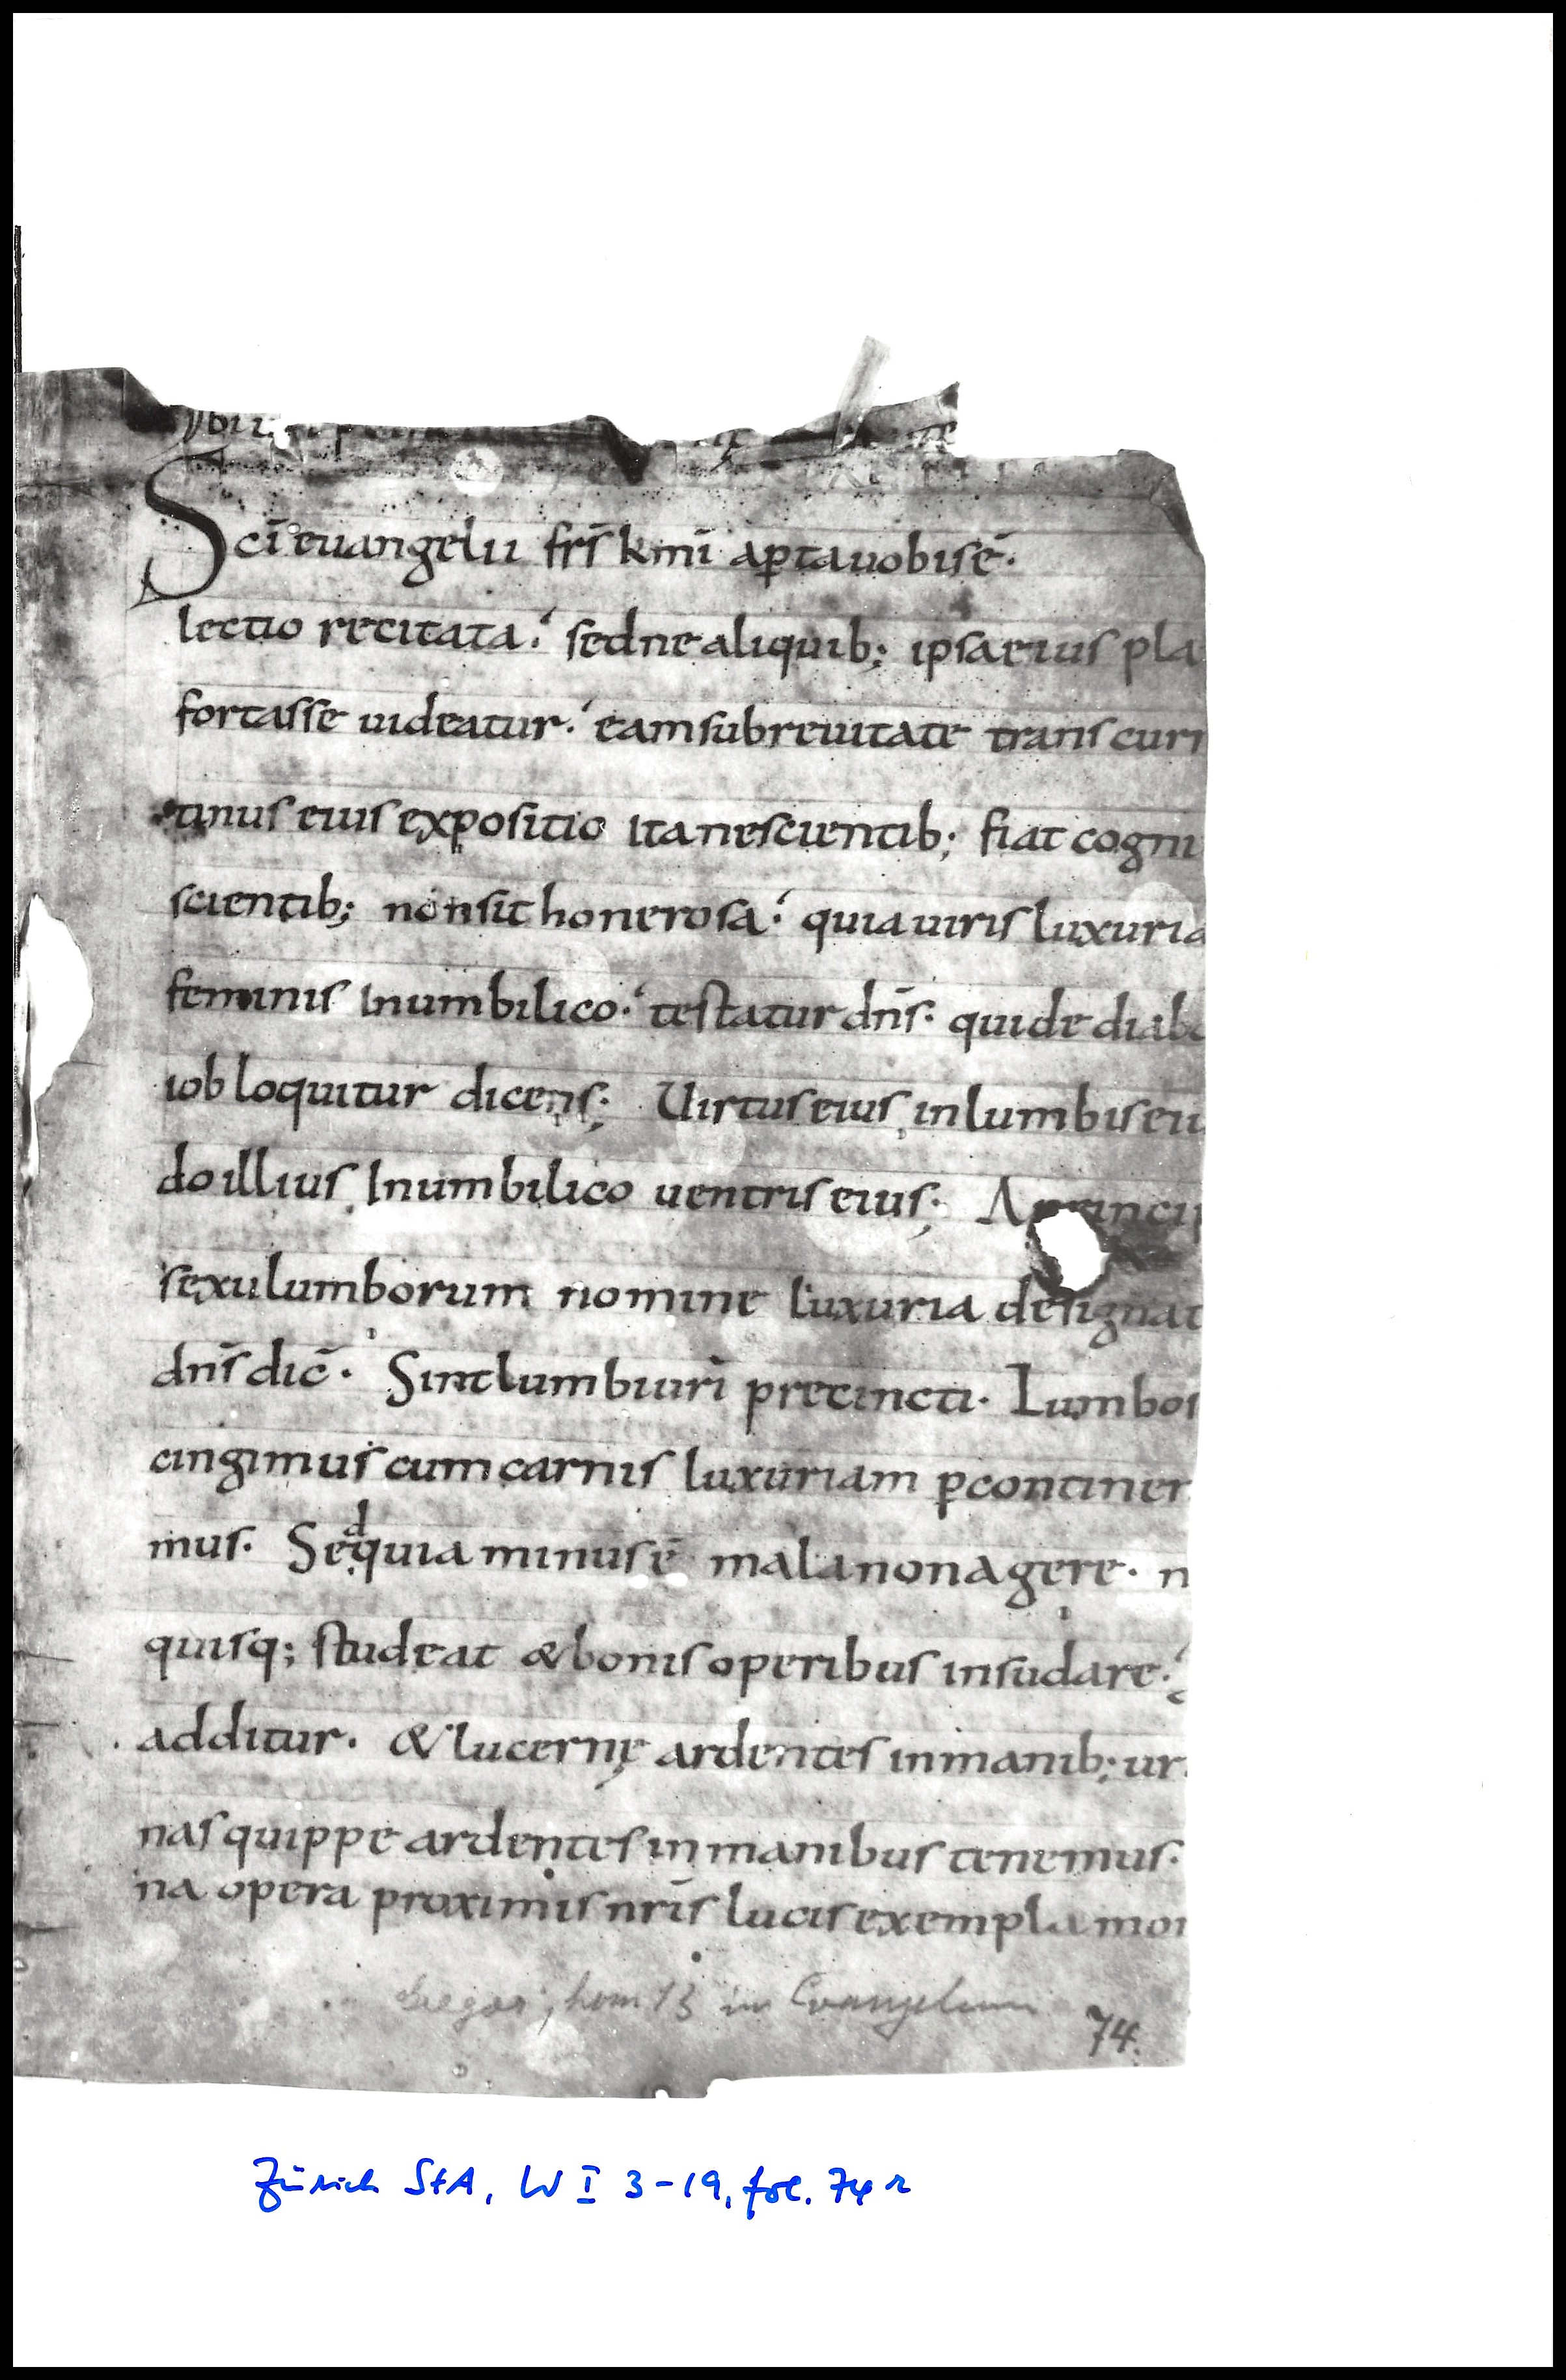 Scī euangelii frs̄ kmī aꝑta uobis ē.
lectio recitata. sed ne aliquib; ipsa eius pla
fortasse uideatur. eam sub reuitate trans curr
tinus eius expositio ita nescientib; fiat cogni
scientib; non sit honerosa. quia uiris luxuria
feminis in umbilico. testatur dns̄. qui de diabo
iob loquitur dicens; Uirtus eius in lumbis eiu
do illius in umbilico uentris eius;
sexu lumborum nomine luxuria designat
dns̄ dic̄. Sint lumbi uri precincti. Lumbos
cingimus cum carnis luxuriam ꝑ continen
mus. Sed quia minus ē mala non agere. n
quisq; studeat & bonis operibus insudare.
additur. & lucernę ardentes in manib; ur
nas quippe ardentes in manibus tenemus.
na opera proximis nrīs lucis exempla mon
Gregor, hom 13 in Evangelium
74.
Zürich StA, W I 3-19, fol. 74 r